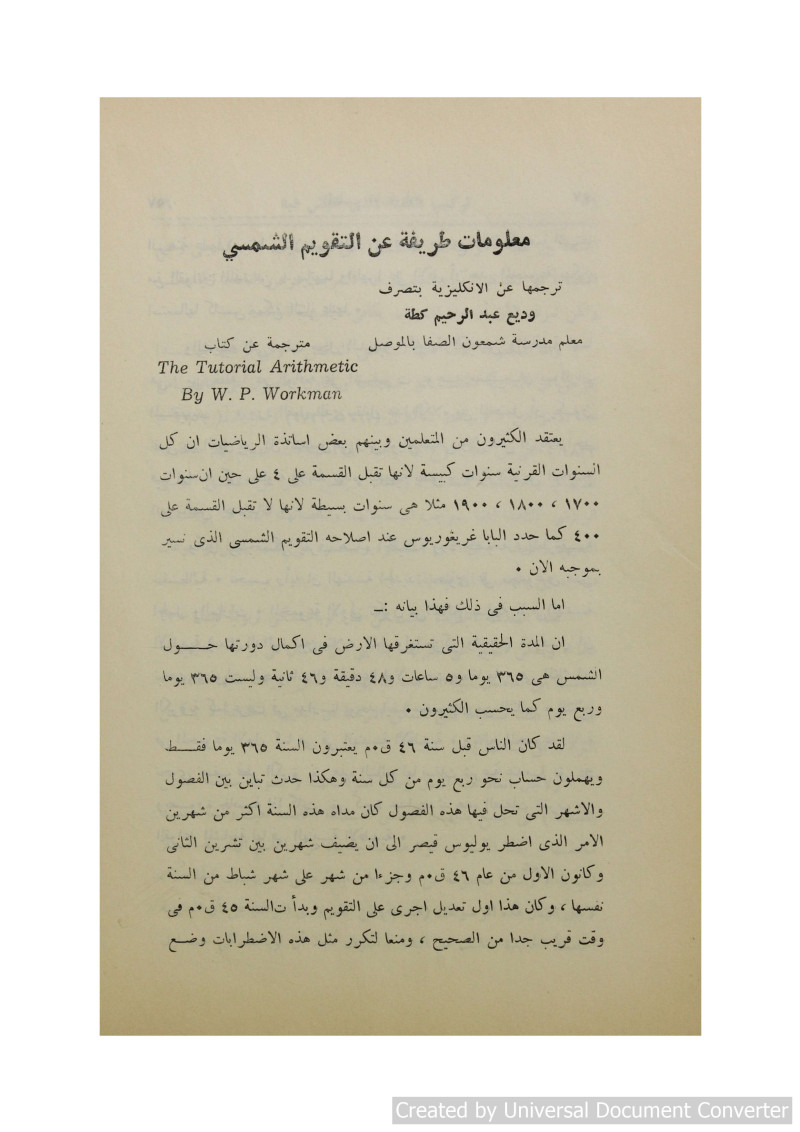 معلومات طريفة عن التقويم الشمسي
ترجمها عن الانكليزية بتصرف
وديع عبد الرحيم كطة
معلم مدرسة شمعون الصفا بالموصل مترجمة عن كتاب
The Tutorial Arithmetic
By W. P. Workman
يعتقد الكثيرون من المتعلمين وبينهم بعض اساتذة الرياضيات ان كل
السنوات القرنية سنوات كبيسة لانها تقبل القسمة على ٤ على حين ان سنوات
١٧٠٠ ، ١٨٠٠ ، ١٩٠٠ مثلا هى سنوات بسيطة لانها لا تقبل القسمة على
٤٠٠ كما حدد البابا غريغوريوس عند اصلاحه التقويم الشمسى الذى نسير
بموجبه الان ٠
اما السبب فى ذلك فهذا بيانه :ــ
ان المدة الحقيقية التى تستغرقها الارض فى اكمال دورتها حـــــول
الشمس هى ٣٦٥ يوما و٥ ساعات و٤٨ دقيقة و٤٦ ثانية وليست ٣٦٥ يوما
وربع يوم كما يحسب الكثيرون ٠
لقد كان الناس قبل سنة ٤٦ ق٠م يعتبرون السنة ٣٦٥ يوما فقـــط
ويهملون حساب نحو ربع يوم من كل سنة وهكذا حدث تباين بين الفصول
والاشهر التى تحل فيها هذه الفصول كان مداه هذه السنة اكثر من شهرين
الامر الذى اضطر يوليوس قيصر الى ان يضيف شهرين بين تشرين الثانى
وكانون الاول من عام ٤٦ ق٠م وجزءا من شهر على شهر شباط من السنة
نفسها ، وكان هذا اول تعديل اجرى على التقويم وبدأ تالسنة ٤٥ ق٠م فى
وقت قريب جدا من الصحيح ، ومنعا لتكرر مثل هذه الاضطرابات وضـــع
Created by Universal Document Converter